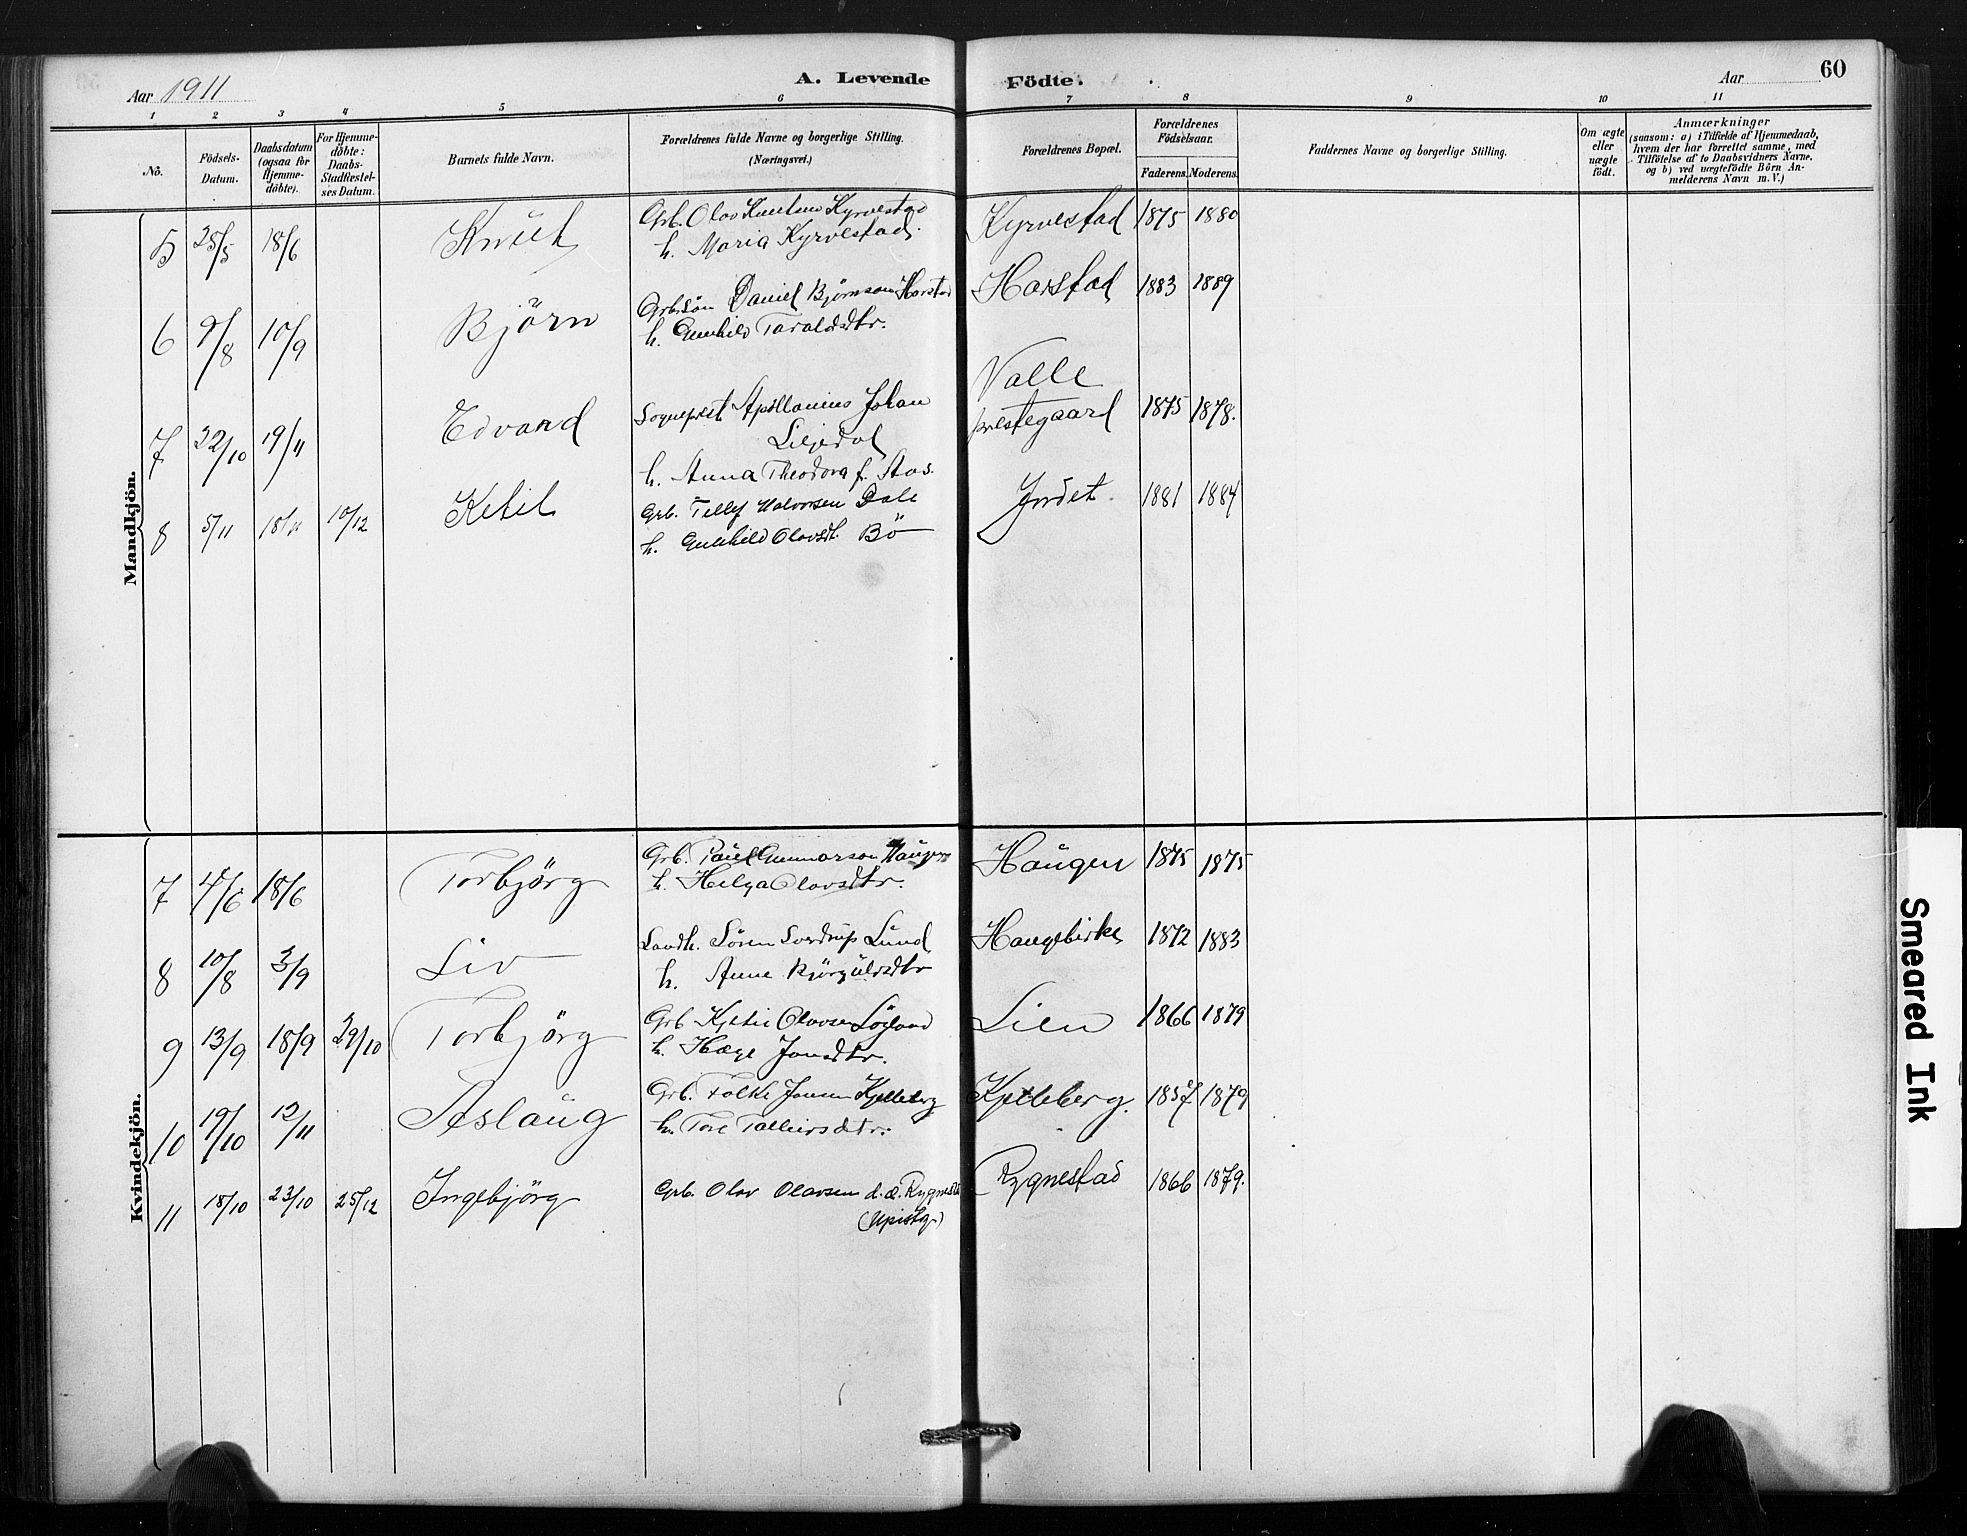 Aar 1911
A. Levende Födte.
Aar
60
1 2 3 4 5 6 7 8 9 10 11
No.
Födsels-Datum.
Daabsdatum (ogsaa for Hjemme-döbte).
For Hjemme-döbte: Daabs-Stadfæstel-ses Datum.
Barnets fulde Navn.
Forældrenes fulde Navne og borgerlige Stilling. (Næringsvei.)
Forældrenes Bopæl.
Forældrenes Födselsaar.
Faderens. Moderens.
Faddernes Navne og borgerlige Stilling.
Om ægte eller uægte födt.
Anmærkninger
(saasom: a) i Tilfælde af Hjemmedaab, hvem der har forrettet samme, med Tilföielse af to Daabsvidners Navne, og b) ved uægtefödte Börn An-melderens Navn m. V.)
Mandkjön.
5 25/5 18/6 Knut Grb. Olov Knutsen Kyrvestad Kyrvestad 1875 1880
h. Maria Kyrvestad.
6 9/8 10/9 Björn Grb.sön Daniel Bjørnson Harstad Harstad 1883 1889
h. Gunhild Taraldsdtr.
7 22/10 19/11 Edvard Sogneprest Apollonius Johan Valle prestegaard 1875 1878.
Liljedal
h. Anna Theodora f. Aas.
8 5/11 18/11 10/12 Ketil Grb. Tellef Halvorsen Dale 1881 1884
h. Gunhild Olovsdt. Bö
Kvindekjön.
7 4/6 18/6 Torbjörg Grb. Paul Gunnarson Haugen Haugen 1875 1875
h. Helga Olovsdtr.
8 10/8 3/9 Liv Landh. Sören Sverdrup Lund 1872 1883
h. Anne Björgulvsdtr
9 13/9 18/9 29/10 Torbjörg Grb Kjetil Olovsen Lien 1866 1879
h. Hæge Jonsdtr.
10 19/10 12/11 Aslaug Grb. Folke Jonsen Kjelleberg Kjelleberg. 1857 1879
h. Tore Talleivsdtr.
11 18/10 23/10 25/12 Ingebjörg Grb. Olov Olavsen d. æ. Rygnestad Rygnestad 1866 1879.
Smeared Ink